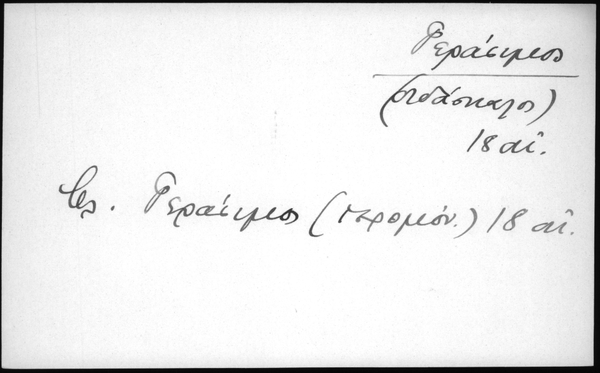 Γεράσιμος
(διδάσκαλος)
18 αἰ.
βλ. Γεράσιμος (ἱερομόν.) 18 αἰ.